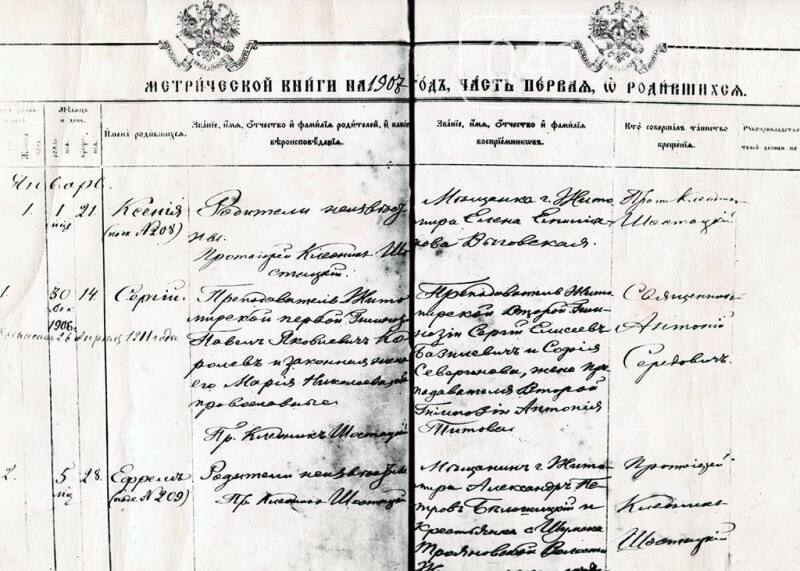 МЕТРИЧЕСКОЙ КНИГИ НА 1907 ГОДЪ, ЧАСТЬ ПЕРВАЯ, Ѡ РОДИВШИХСЯ.
Мѣсяцъ и день.
Имена родившихся.
Званіе, имя, отчество и фамилія родителей, и какого
вѣроисповѣданія.
Званіе, имя, отчество и фамилія
воспріемниковъ.
Кто совершалъ таинство
крещенія.
Рукоприкладство
Январь.
1. 1 21. Ксенія
(пол. № 208)
Родители неизвѣст
ны.
Протоіерей Клеоникъ Шо
стацкій.
Мѣщанка г. Жито
міра Елена
Выговская.
Прот. Клеоникъ
Шостацкій
1. 30 14. Сергій.
1906.
26 Апрѣля 1911 года
Преподаватель Жито
мірской первой Гимназіи
Павелъ Яковлевичъ Ко
ролевъ и законная жена
его Марія Николаевна, оба
православные.
Пр. Клеоникъ Шостацкій
Преподаватель Жито
мірской Второй Гим
назіи Сергій Елисеевъ
Базилевичъ и Софія
жена пре
подавателя Второй
Гимназіи Антонія
Титова.
Священникъ
Антоній
Середовичъ.
2. 5 28. Ефремъ
(пол. № 209)
Родители неизвѣстны
Пр. Клеоникъ Шостацкій
Мѣщанинъ г. Жито
міра Александръ Пе
тровъ Бялошицкій и
Крестьянка с. Шумска
Трояновской Волости
Протоіерей
Клеоникъ
Шостацкій